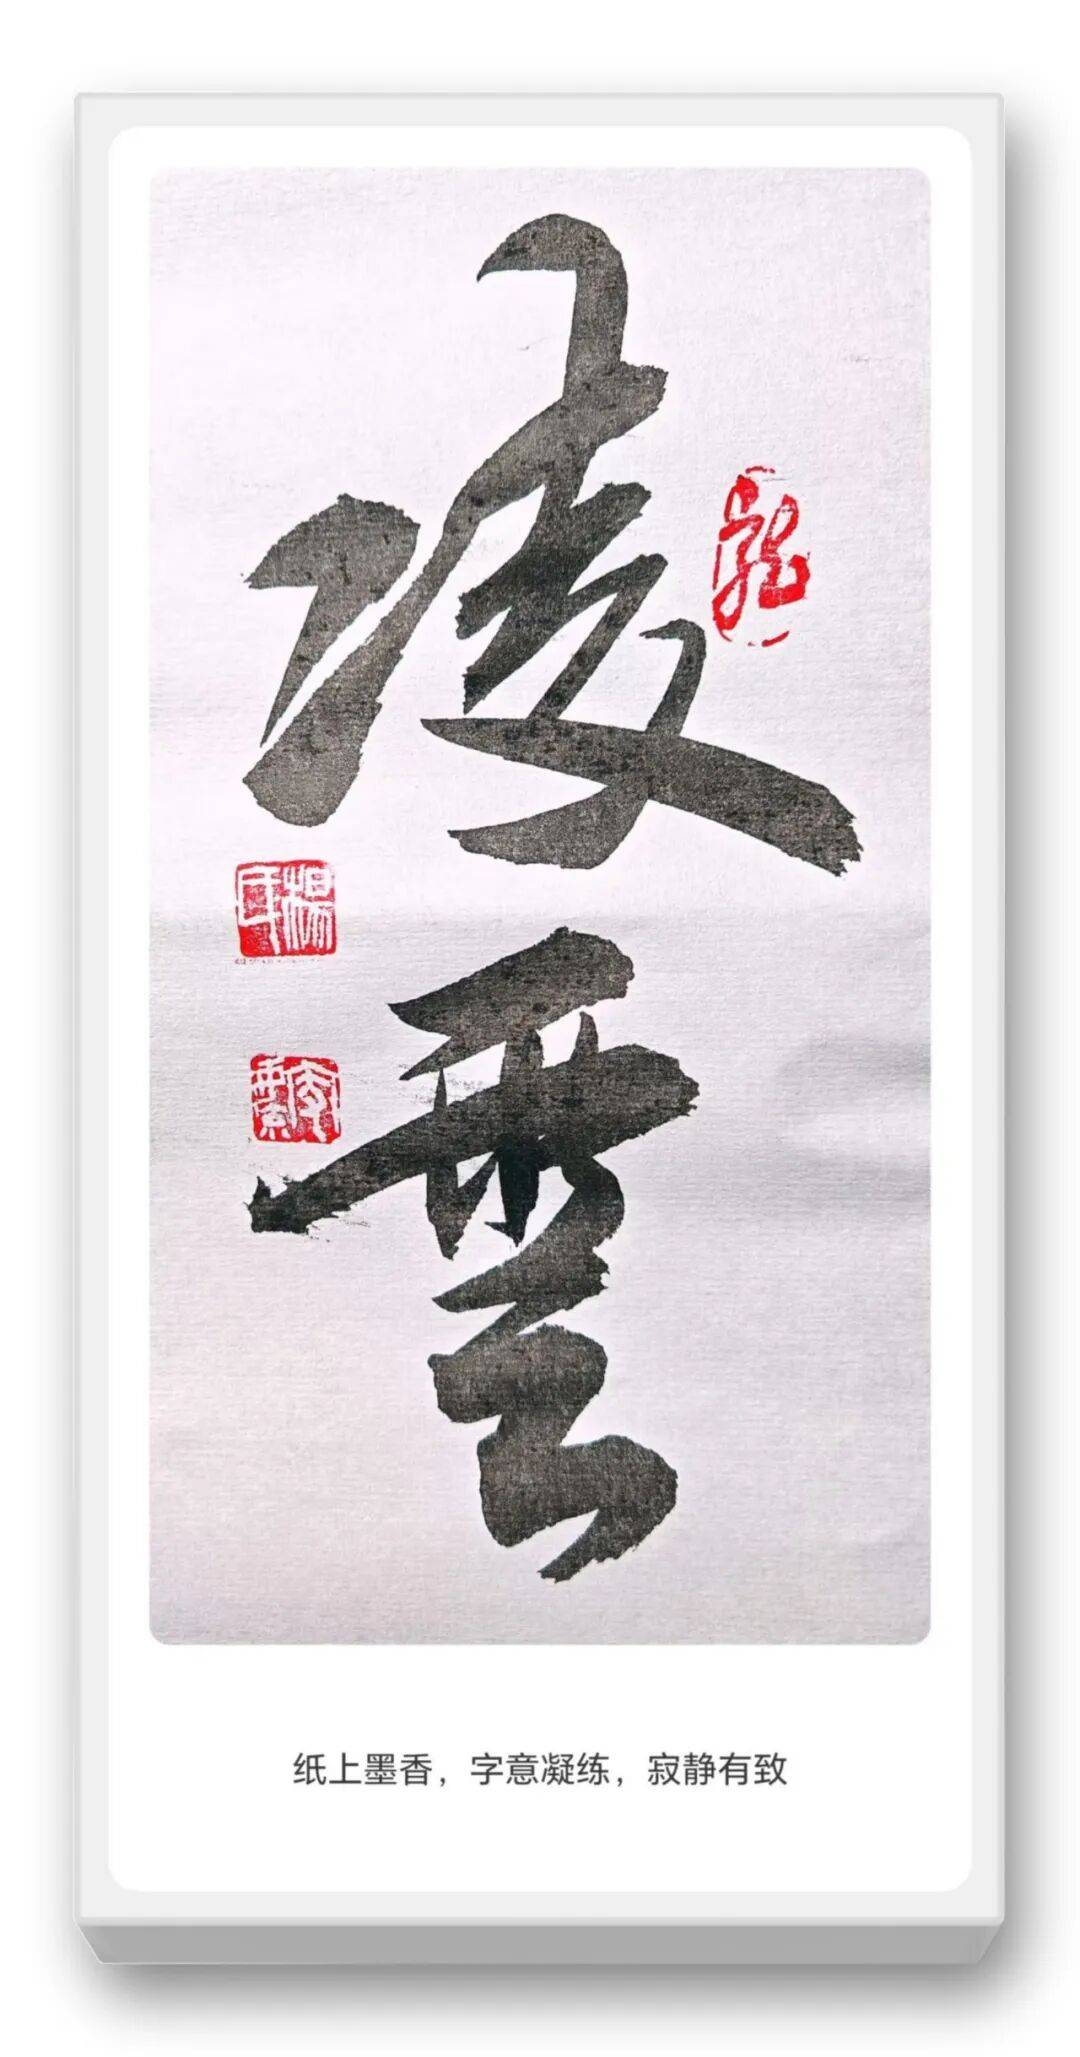 凌雲
龍
纸上墨香，字意凝练，寂静有致